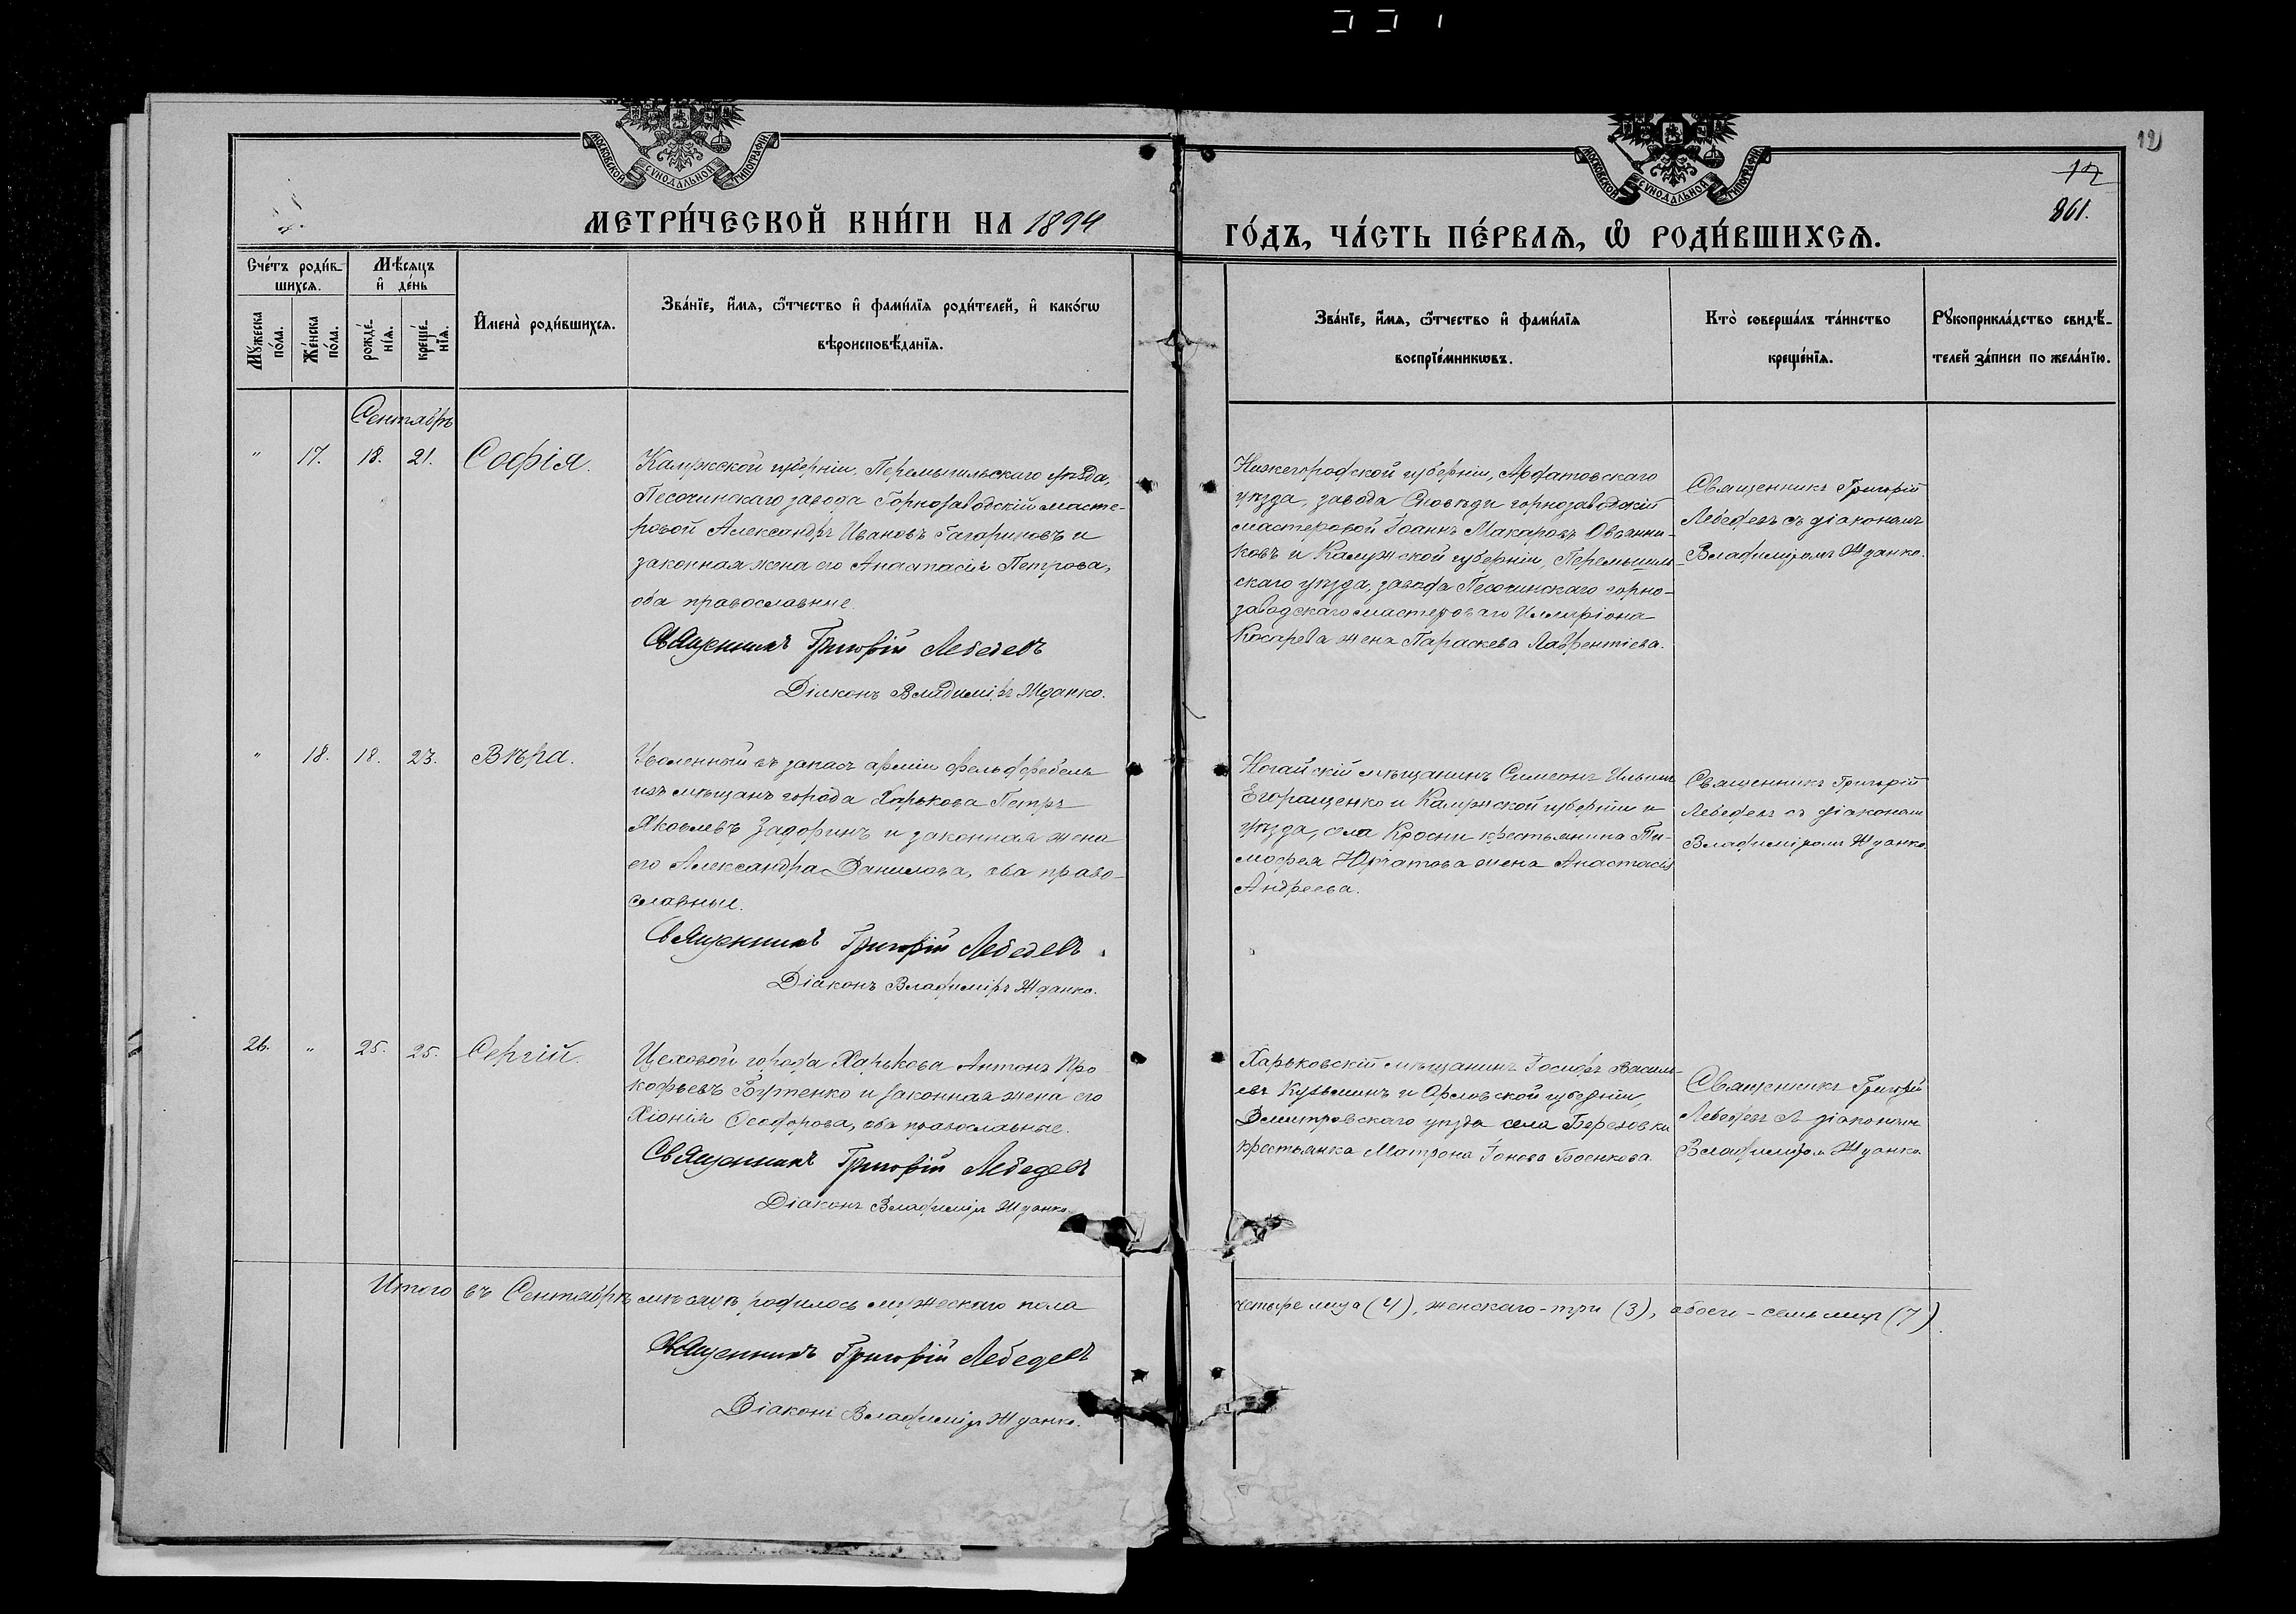 МОСКОВСКОЙ СѴНОДАЛЬНОЙ ТИПОГРАФІИ
МОСКОВСКОЙ СѴНОДАЛЬНОЙ ТИПОГРАФІИ
12
12
861.
МЕТРИ́ЧЕСКОЙ КНИ́ГИ НА 1894
ГО́ДЪ, ЧА́СТЬ ПЕ́РВАѦ, Ѡ҆ РОДИ́ВШИХСѦ.
Сче́тъ роди́в-
шихсѧ.
Мѣ́сѧцъ
и҆ де́нь
Мꙋ́жеска
по́ла.
Же́нска
по́ла.
рожде́-
нїѧ.
креще́-
нїѧ.
И҆мена̀ роди́вшихсѧ.
Зва́нїе, и҆́мѧ, ѻ҆́тчество и҆ фами́лїѧ роди́телей, и҆ како́гѡ
вѣроисповѣ́данїѧ.
Зва́нїе, и҆́мѧ, ѻ҆́тчество и҆ фами́лїѧ
воспрїе́мникѡвъ.
Кто̀ соверша́лъ та́инство
креще́нїѧ.
Рꙋкоприкла́дство свидѣ́-
телей за́писи по жела́нїю.
Сентябрь
" 17. 18. 21. Софія.
Калужской губерніи, Перемышльскаго уѣзда,
Песочинскаго завода Горнозаводскій масте-
ровой Александръ Ивановъ Гагариновъ и
законная жена его Анастасія Петрова,
оба православные.
Священникъ Григорій Лебедевъ
Діаконъ Владиміръ Жданко.
Нижегородской губерніи, Ардатовскаго
уѣзда, завода горнозаводскій
мастеровой Іоаннъ Макаровъ Овчинни-
ковъ и Калужской губерніи, Перемышль-
скаго уѣзда, завода Песочинскаго горно-
заводскаго мастероваго Илларіона
Косарева жена Параскева Лаврентіева.
Священникъ Григорій
Лебедевъ съ діакономъ
Владиміромъ Жданко.
" 18. 18. 23. Вѣра.
Уволенный въ запасъ арміи фельдфебель
изъ мѣщанъ города Харькова Петръ
Яковлевъ Задоринъ и законная жена
его Александра Данилова, оба право-
славные.
Священникъ Григорій Лебедевъ.
Діаконъ Владиміръ Жданко.
Ногайскій мѣщанинъ Симеонъ Ильинъ
Егоращенко и Калужской губерніи и
уѣзда, села Кросни крестьянина Ти-
мофея жена Анастасія
Андреева.
Священникъ Григорій
Лебедевъ съ діакономъ
Владиміромъ Жданко.
26. " 25. 25. Сергій.
Цеховой города Харькова Антонъ Про-
кофьевъ Бутенко и законная жена его
Хіонія Ѳеодорова, оба православные.
Священникъ Григорій Лебедевъ
Діаконъ Владиміръ Жданко.
Харьковскій мѣщанинъ Іосифъ Василь-
евъ Кузьминъ и Орловской губерніи,
Дмитровскаго уѣзда села Березовки
крестьянка Матрона Іонова Боенкова.
Священникъ Григорій
Лебедевъ съ діакономъ
Владиміромъ Жданко.
Итого въ Сентябрѣ мѣсяцѣ родилось мужескаго пола
четыре лица (4), женскаго - три (3), обоего - семь лицъ (7).
Священникъ Григорій Лебедевъ
Діаконъ Владиміръ Жданко.